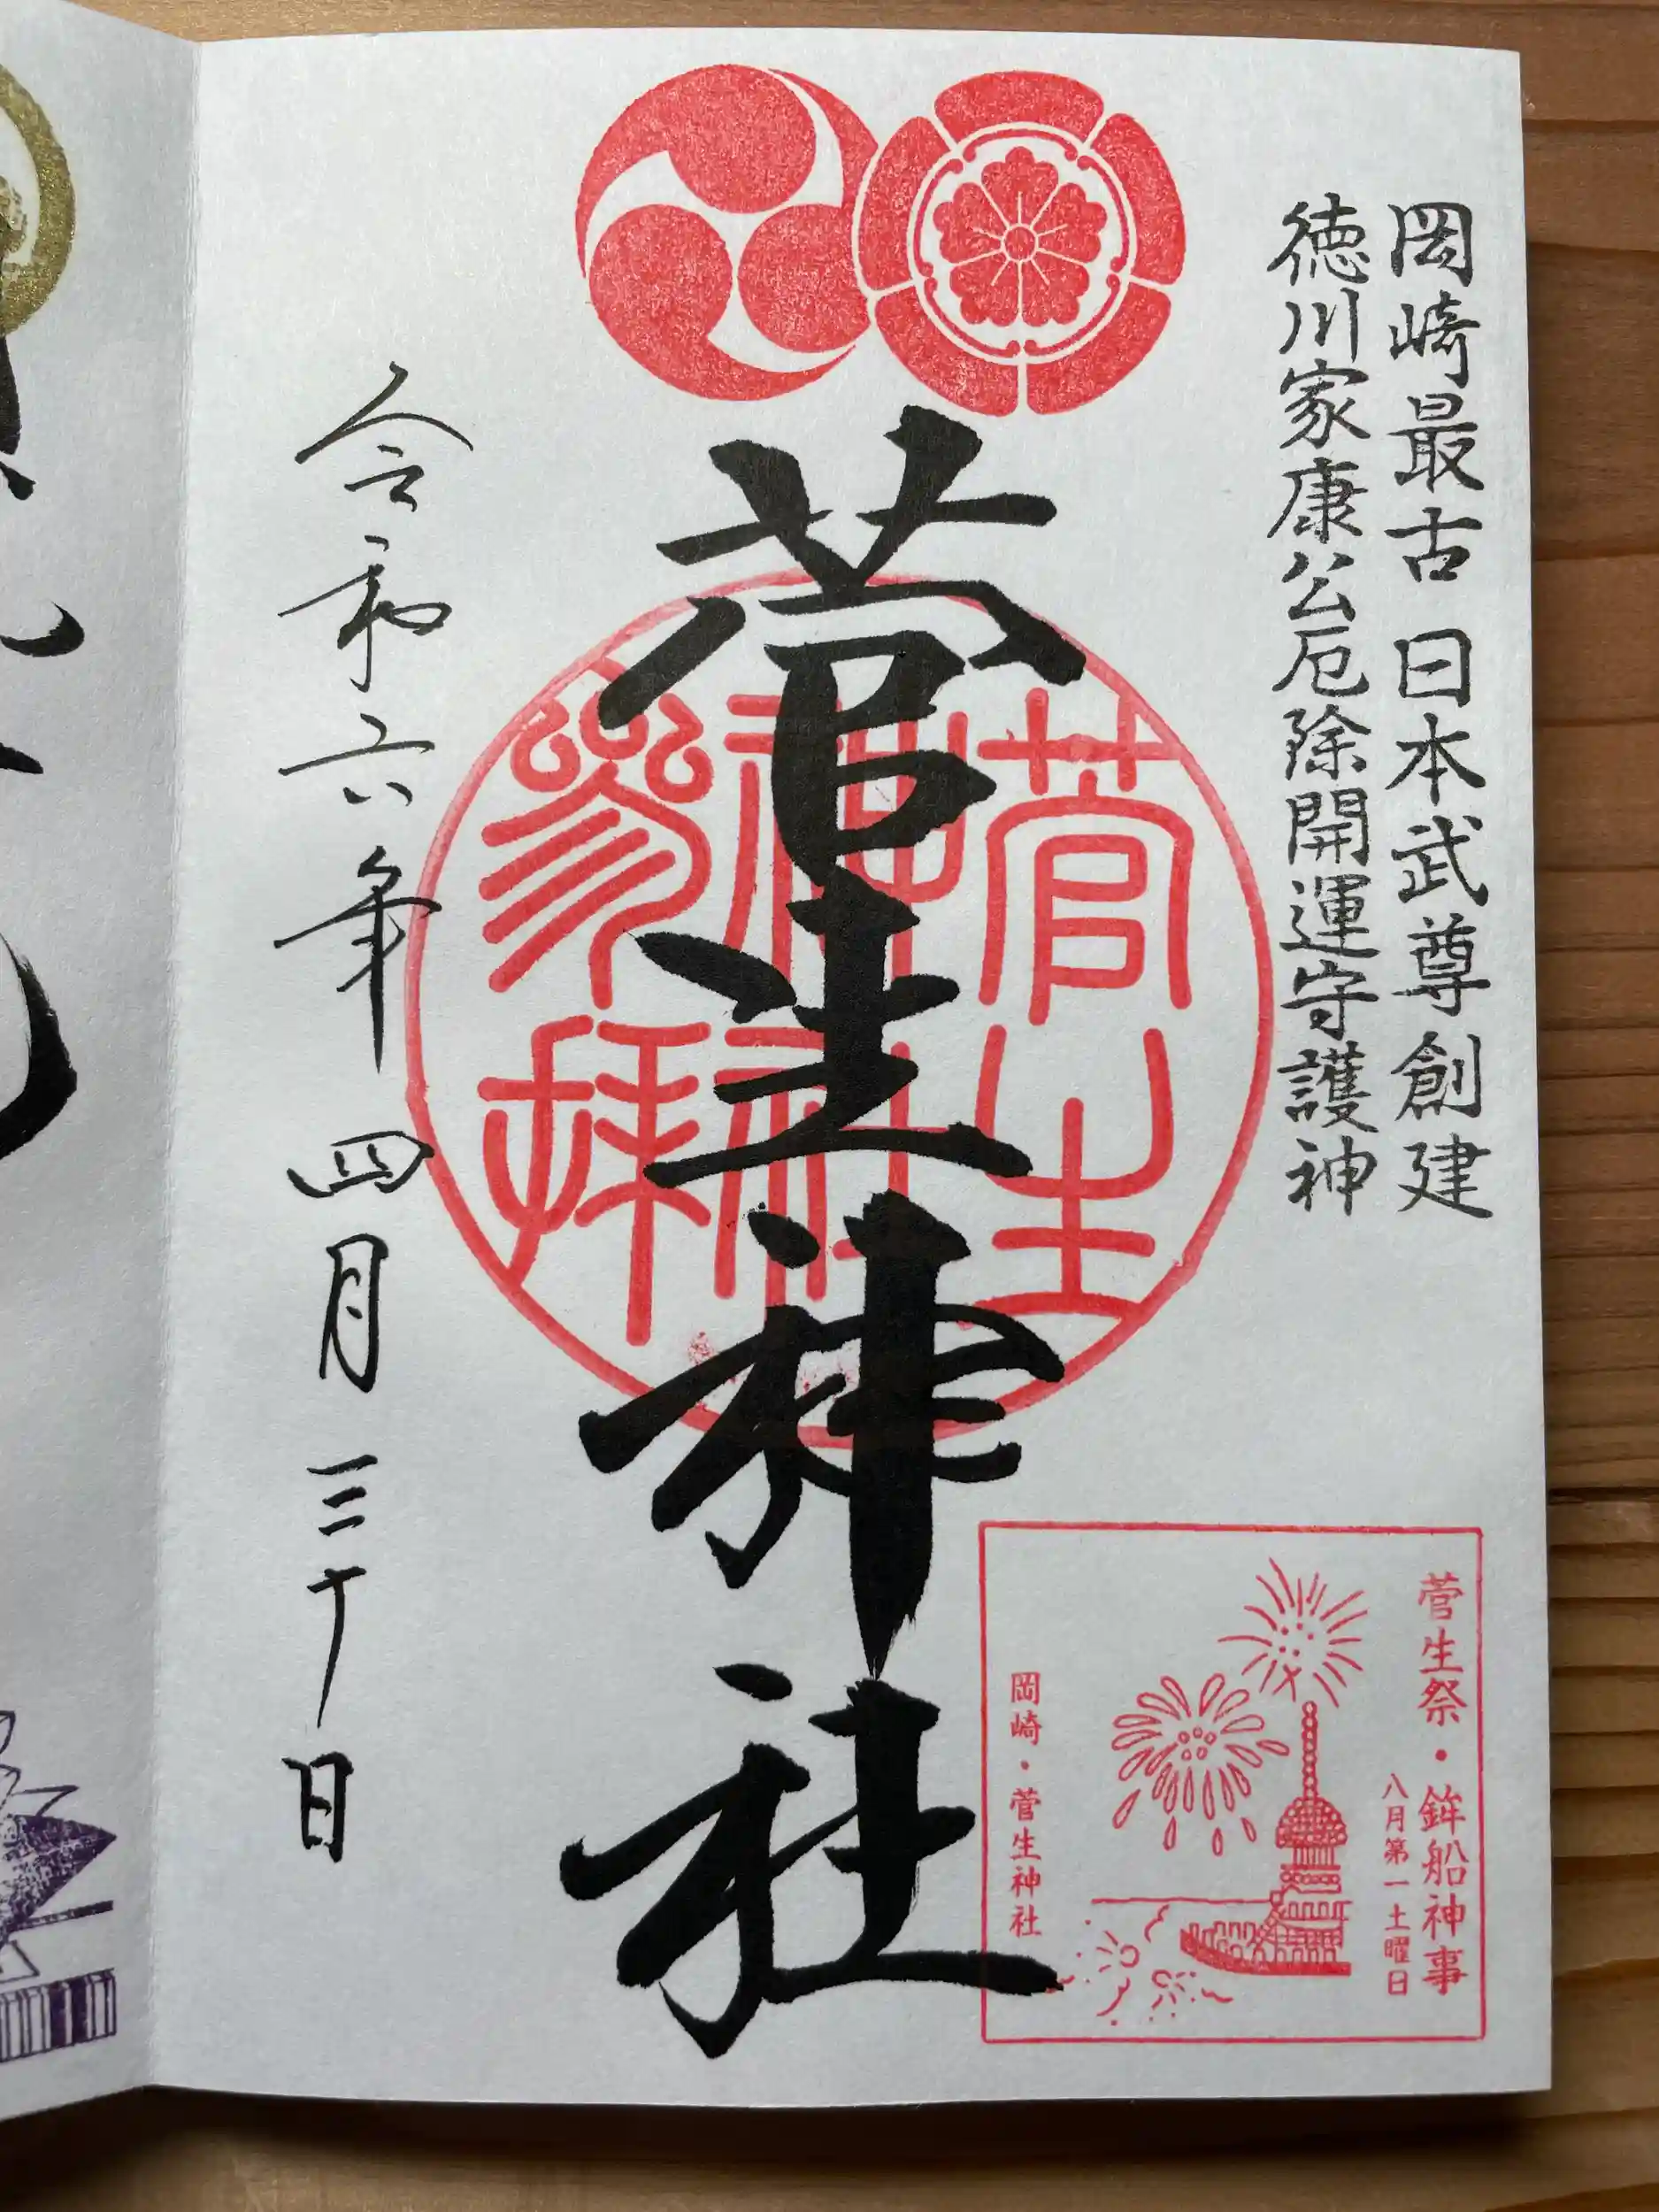 岡崎最古 日本武尊創建
徳川家康公厄除開運守護神
菅生神社
菅生
神社
参拝
令和六年 四月 三十日
菅生祭・鉾船神事
八月第一土曜日
岡崎・菅生神社